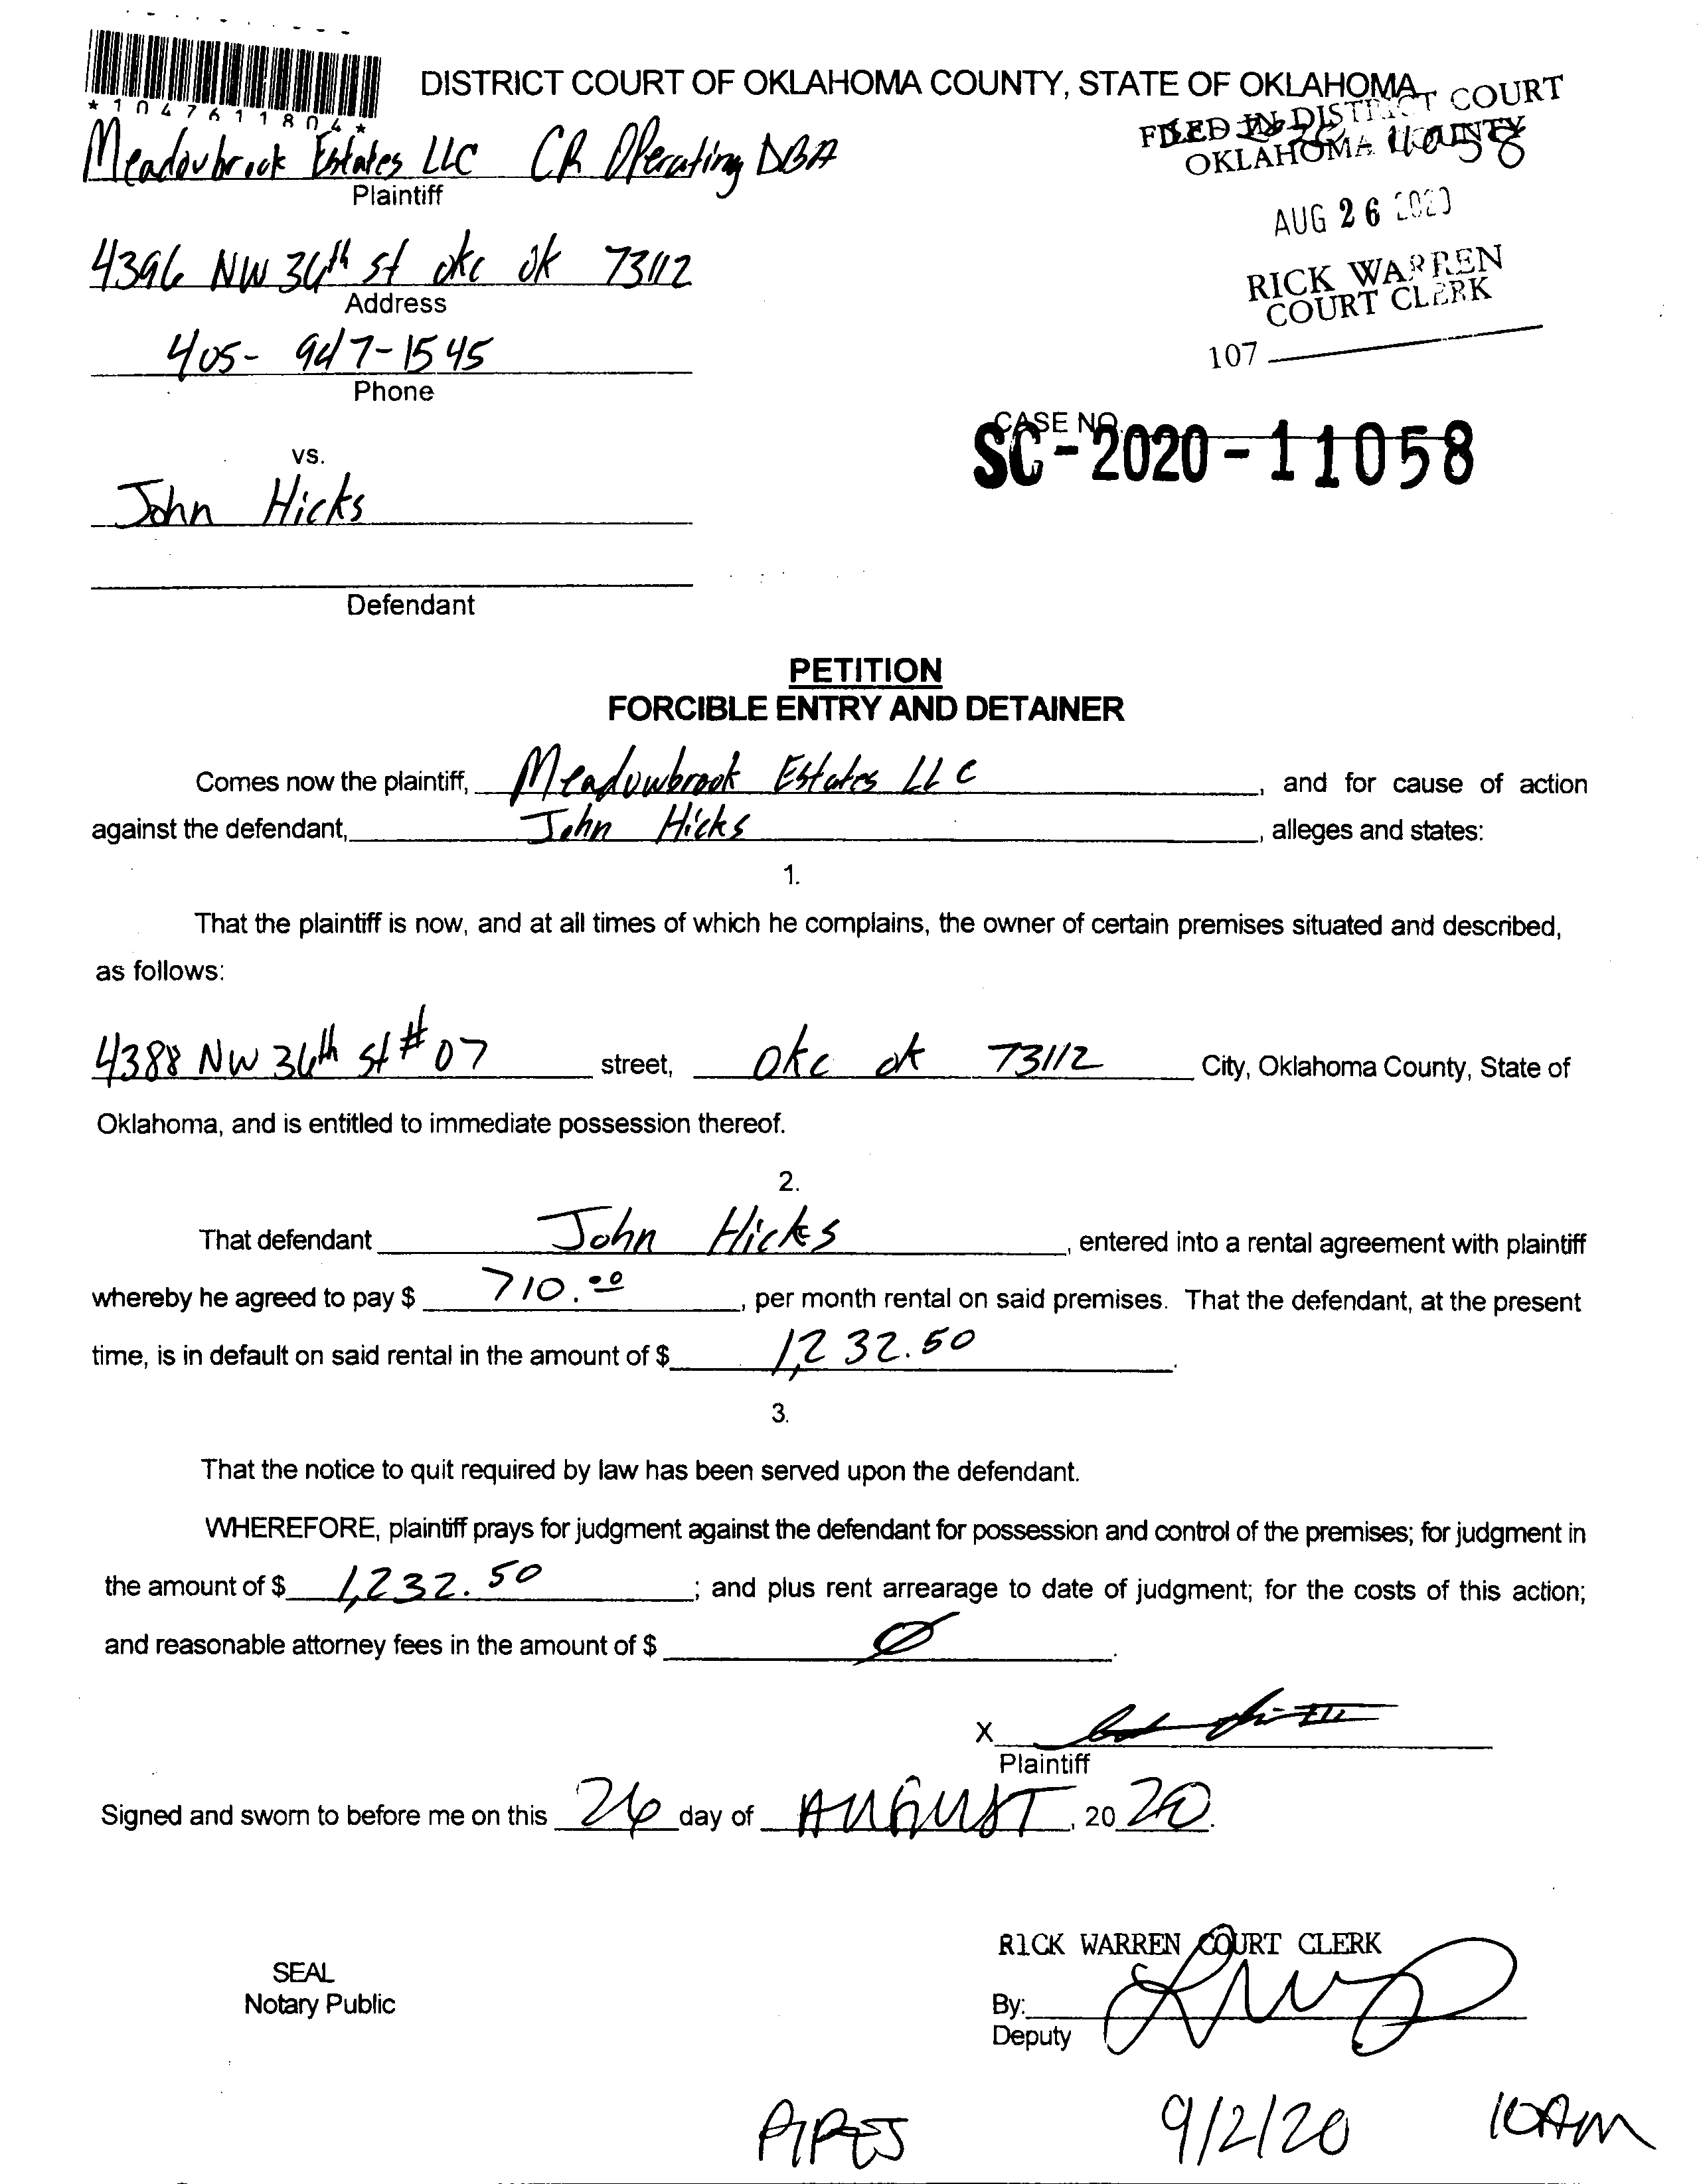 *1047611804*
DISTRICT COURT OF OKLAHOMA COUNTY, STATE OF OKLAHOMA
FILED IN DISTRICT COURT
OKLAHOMA COUNTY
Meadowbrook Estates LLC CR Operating DBA
Plaintiff
AUG 26 2020
4396 NW 36th st okc ok 73112
Address
RICK WARREN
COURT CLERK
405-947-1545
Phone
107
CASE NO.
SC-2020-11058
vs.
John Hicks
Defendant
PETITION
FORCIBLE ENTRY AND DETAINER
Comes now the plaintiff, Meadowbrook Estates LLC, and for cause of action
against the defendant, John Hicks, alleges and states:
1.
That the plaintiff is now, and at all times of which he complains, the owner of certain premises situated and described,
as follows:
4388 NW 36th st # 07 street, okc ok 73112 City, Oklahoma County, State of
Oklahoma, and is entitled to immediate possession thereof.
2.
That defendant John Hicks, entered into a rental agreement with plaintiff
whereby he agreed to pay $ 710.00, per month rental on said premises. That the defendant, at the present
time, is in default on said rental in the amount of $ 1,232.50.
3.
That the notice to quit required by law has been served upon the defendant.
WHEREFORE, plaintiff prays for judgment against the defendant for possession and control of the premises; for judgment in
the amount of $ 1,232.50; and plus rent arrearage to date of judgment; for the costs of this action;
and reasonable attorney fees in the amount of $ Ø.
X
Plaintiff
Signed and sworn to before me on this 26 day of AUGUST, 2020.
RICK WARREN COURT CLERK
SEAL
Notary Public
By:
Deputy
9/2/20 10AM